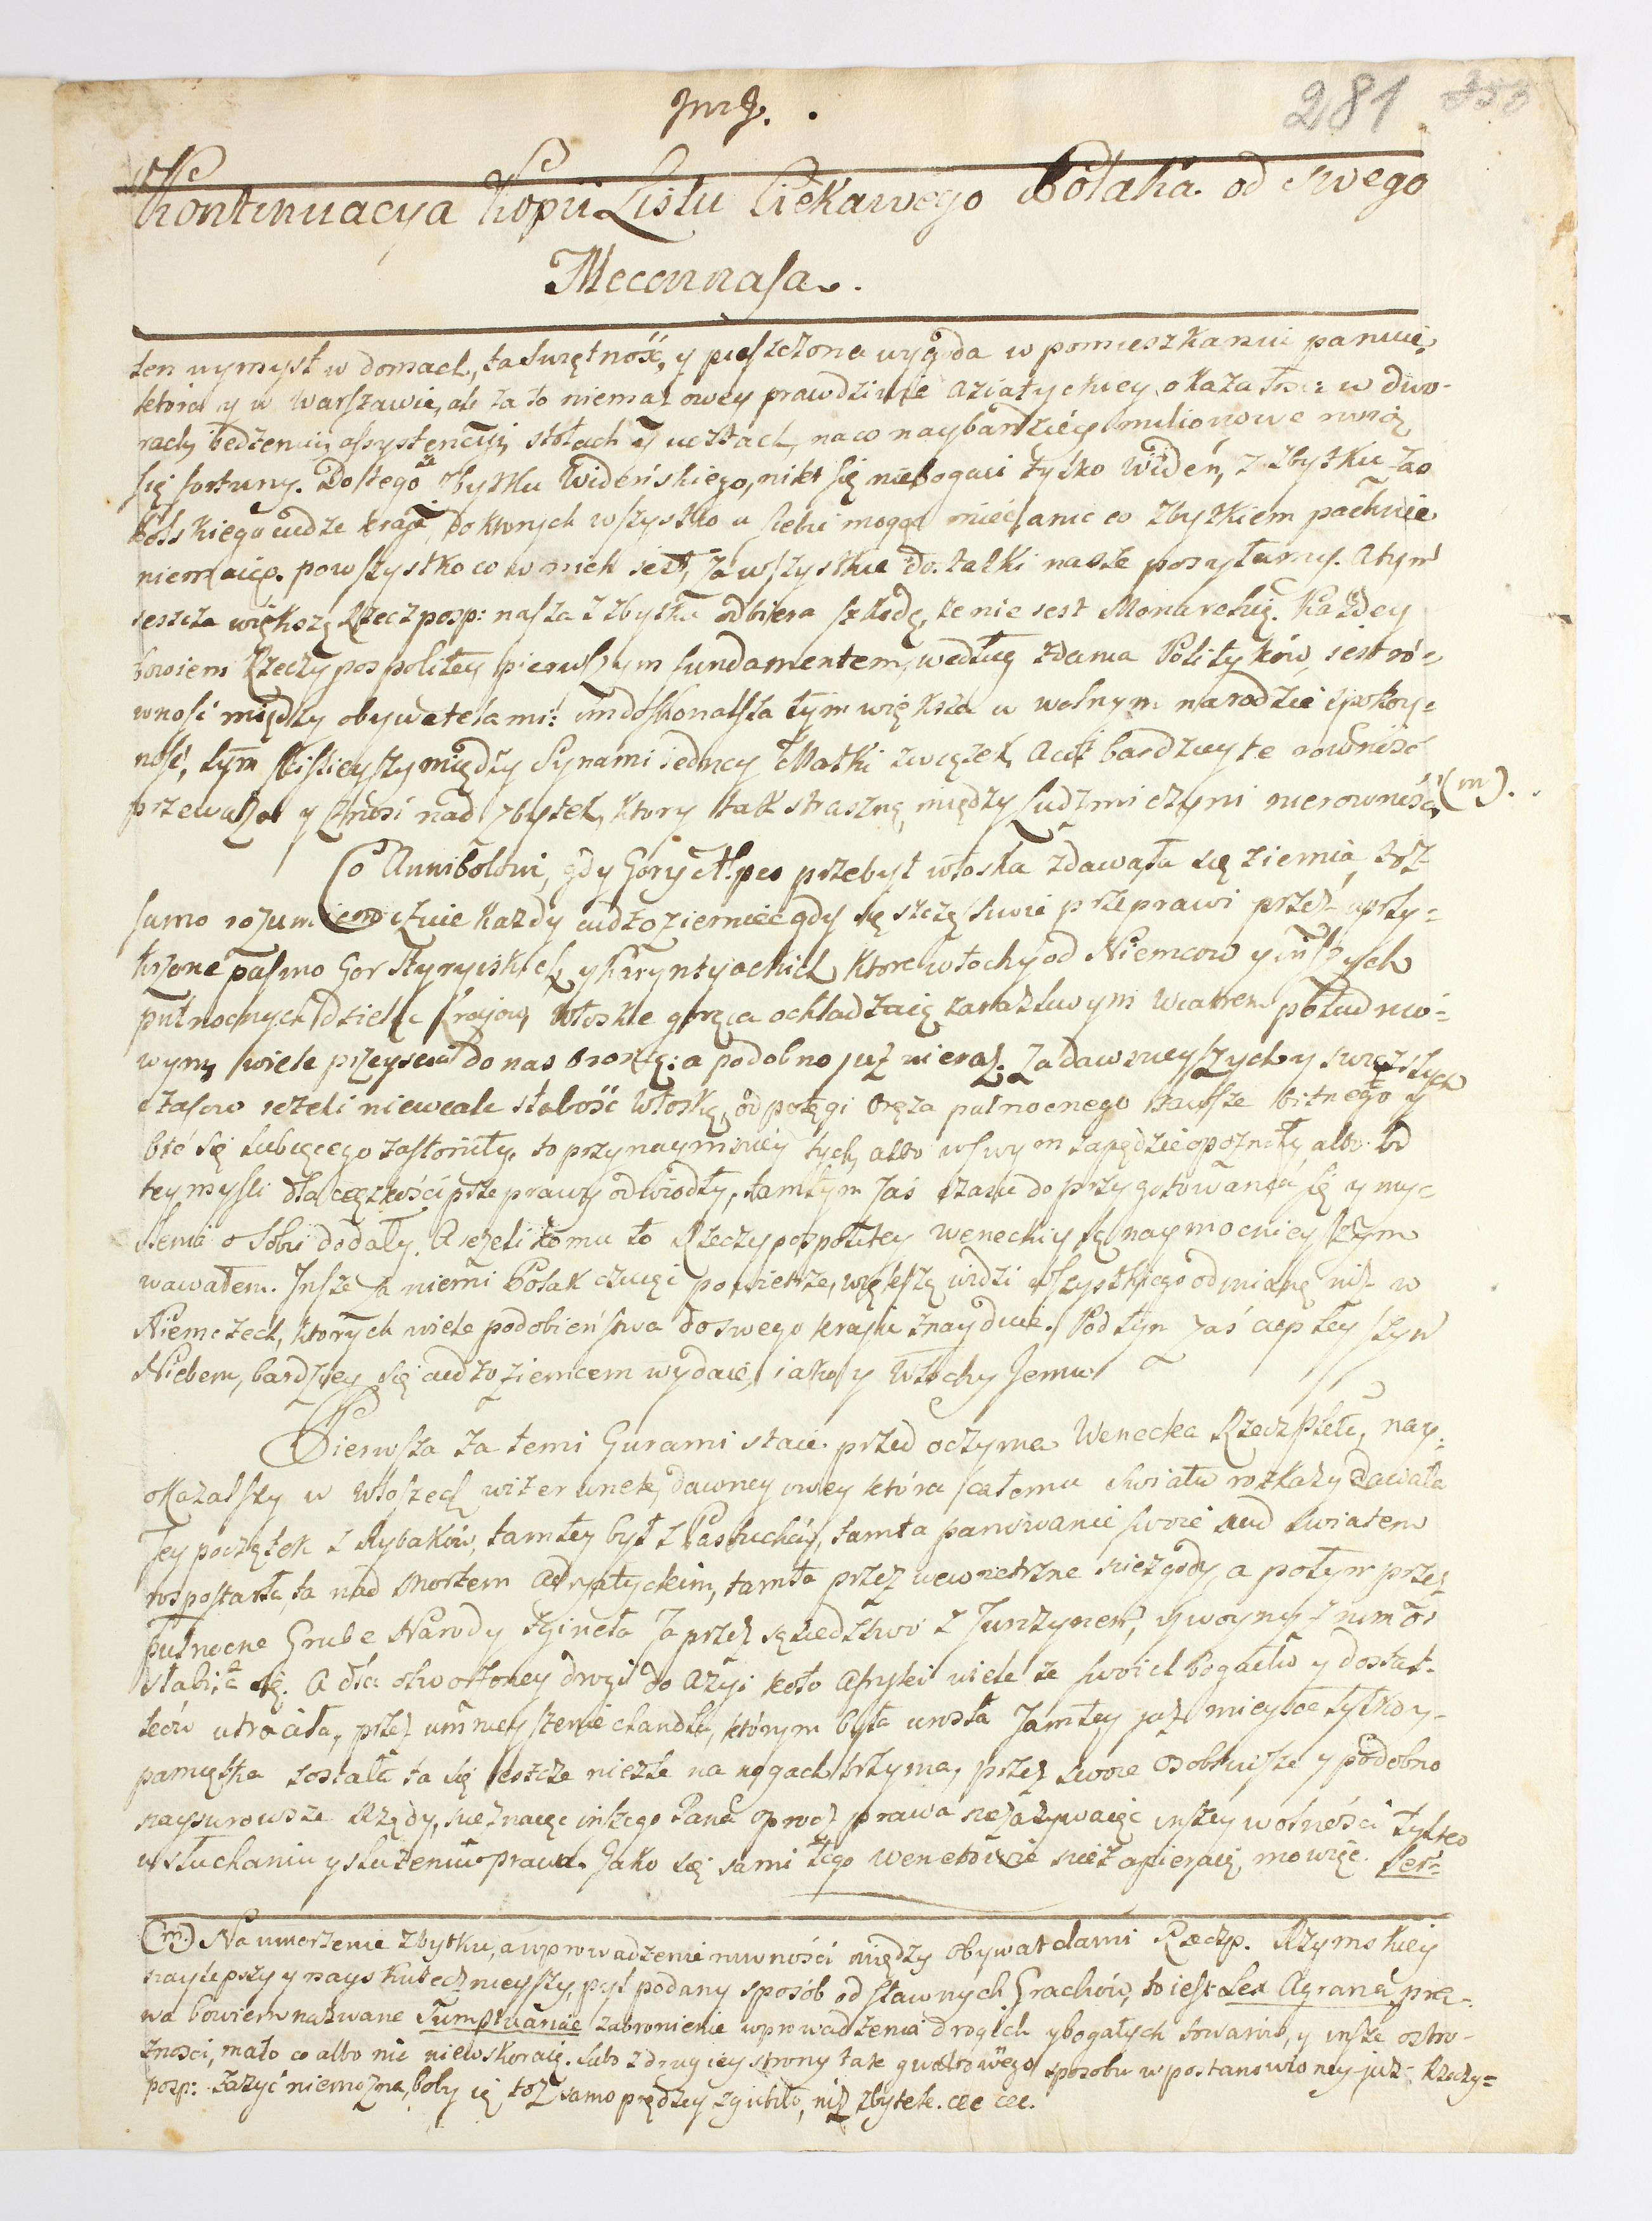 281
Kontinuacya Kopii Listu Ciekawego Polaka od swego
Mecennasa.
ten wymysł w domach, ta swiętność, y pieszczona wygoda w pomieszkaniu panuie,
która y w Warszawie, ale za to niemasz owey prawdziwie aziatyckiey okazałosci w dwo-
rach, assystencyi, stołach y ucztach, na co naybardziey milionowe
się fortuny. Do tego zbytku Widéńskiego, nikt się niebogaci tylko Widéń, z zbytku zaś
Polskiego cudze kraje, do ktorych wszystko u siebie mogąc mieć, a nic co zbytkiem pachnie
niemaiąc. powszystko co w nich jest, zawszystkie dostatki nasze posyłamy. A tym
jeszcze większą Rzeczposp: nasza z zbytku odbiera szkodę, że nie jest Monarchią. Każdey
bowiem Rzeczypospolitey pierwszym fundamentem, według zdania Polityków, jest ró-
wność między obywatelami: im doskonalsza tym większa w wolnym narodzie spokoy-
ność, tym ściśleyszy między Synami jedney Matki związek, a cóż bardziey te równość
przeważa y znosi nad zbytek, ktory tak straszną między ludźmi czyni nierowność (m).
Co Annibolowi, gdy Góry Alpes przebył włoska zdawała się ziemia, toż
samo rozumienie każdy cudzoziemiec gdy się szczęśliwie przeprawi przez uprzy-
krzone pasmo Gor Styryiskich, y Karyntyackich ktore włochy od Niemcow y inszych
pułnocnych dzieląc krajow, Włoskie gorąca ochładzaią zaraźliwym wiatrem południo-
wym, wiele przeyscia do nas bronią: a podobno już nieraz. Za dawnieyszych y swieższych
czasow jeżeli niewcale słabość Włoską, od potęgi Oręża pułnocnego zawsze bitnego y
bić się lubiącego zasłoniły, to przynaymniey tych, albo w swym zapędzie opoźniły, albo od
tey mysli dla ciężkości przeprawy odwiodły, tamtym zaś czasu do przygotowania się y mys-
lenia o sobie dodały. A jeżeli komu to Rzeczypospolitey weneckiey są naymocnieyszym
wawałem. Insze za niemi Polak czuiąc powietrze, większą widzi wszystkiego odmianę niż w
Niemczech, ktorych wiele podobieństwa do swego kraju znayduie. Pod tym zaś cieplejszym
Niebem, bardziey się cudzoziemcem wydaie, iako y Włochy Jemu
Pierwsza za temi Gurami staie przed oczyma Wenecka Rzeczplta, nay-
okazalszy w Włoszech wizerunek, dawney owey która całemu swiatu rozkazy dawała
Jey początek z Rybaków, tamtey był z Pastuchów, tamta panowanie swoie nad swiatem
rospostarła, ta nad Morzem Adryatyckim, tamta przez wewnetrzne niezgody, a potym przez
Pułnocne Grube Narody zgineła Ja przez sąsiedztwo z Turczynem, y woyny z nim o-
słabiła się. A dla otworzoney drogi do Azyi koło Afryki wiele ze swoich Bogactw y dostat-
ków utraciła, przez umnieyszenie chandlu, którym była urosła Jamtey już mieysce tylko y
pamiątka została ta się jeszcze nieźle na nogach trzyma, przez swoie osobliwsze y podobno
naysurowsze Rządy, nieznaiąc inszego Pana oprocz prawa niezażywaiąc inszey wolności tylko
w słuchaniu y służeniu prawu. Jako się sami tego wenetowie niezapieraią, mowiąc. Ser-
(m) Na umorzenie zbytku, a wprowadzenie rowności między Obywatelami Rzeczp. Rzymskiey
naylepszy y nayskutecznieyszy, był podany sposób od sławnych Grachów, to iest Lex Agraria, pra-
wa bowiem nazwane Sumptuariae zabronienie wprowadzenia drogich y bogatych towarów, y insze ostro-
żności, mało co albo nic niewskoraią. Lubo z drugiey strony tak gwałtownego sposobu w postanowioney już Rzeczy-
posp: zażyć niemożna, boby ią toż samo prędzey zgubiło, niż zbytek. etc etc.